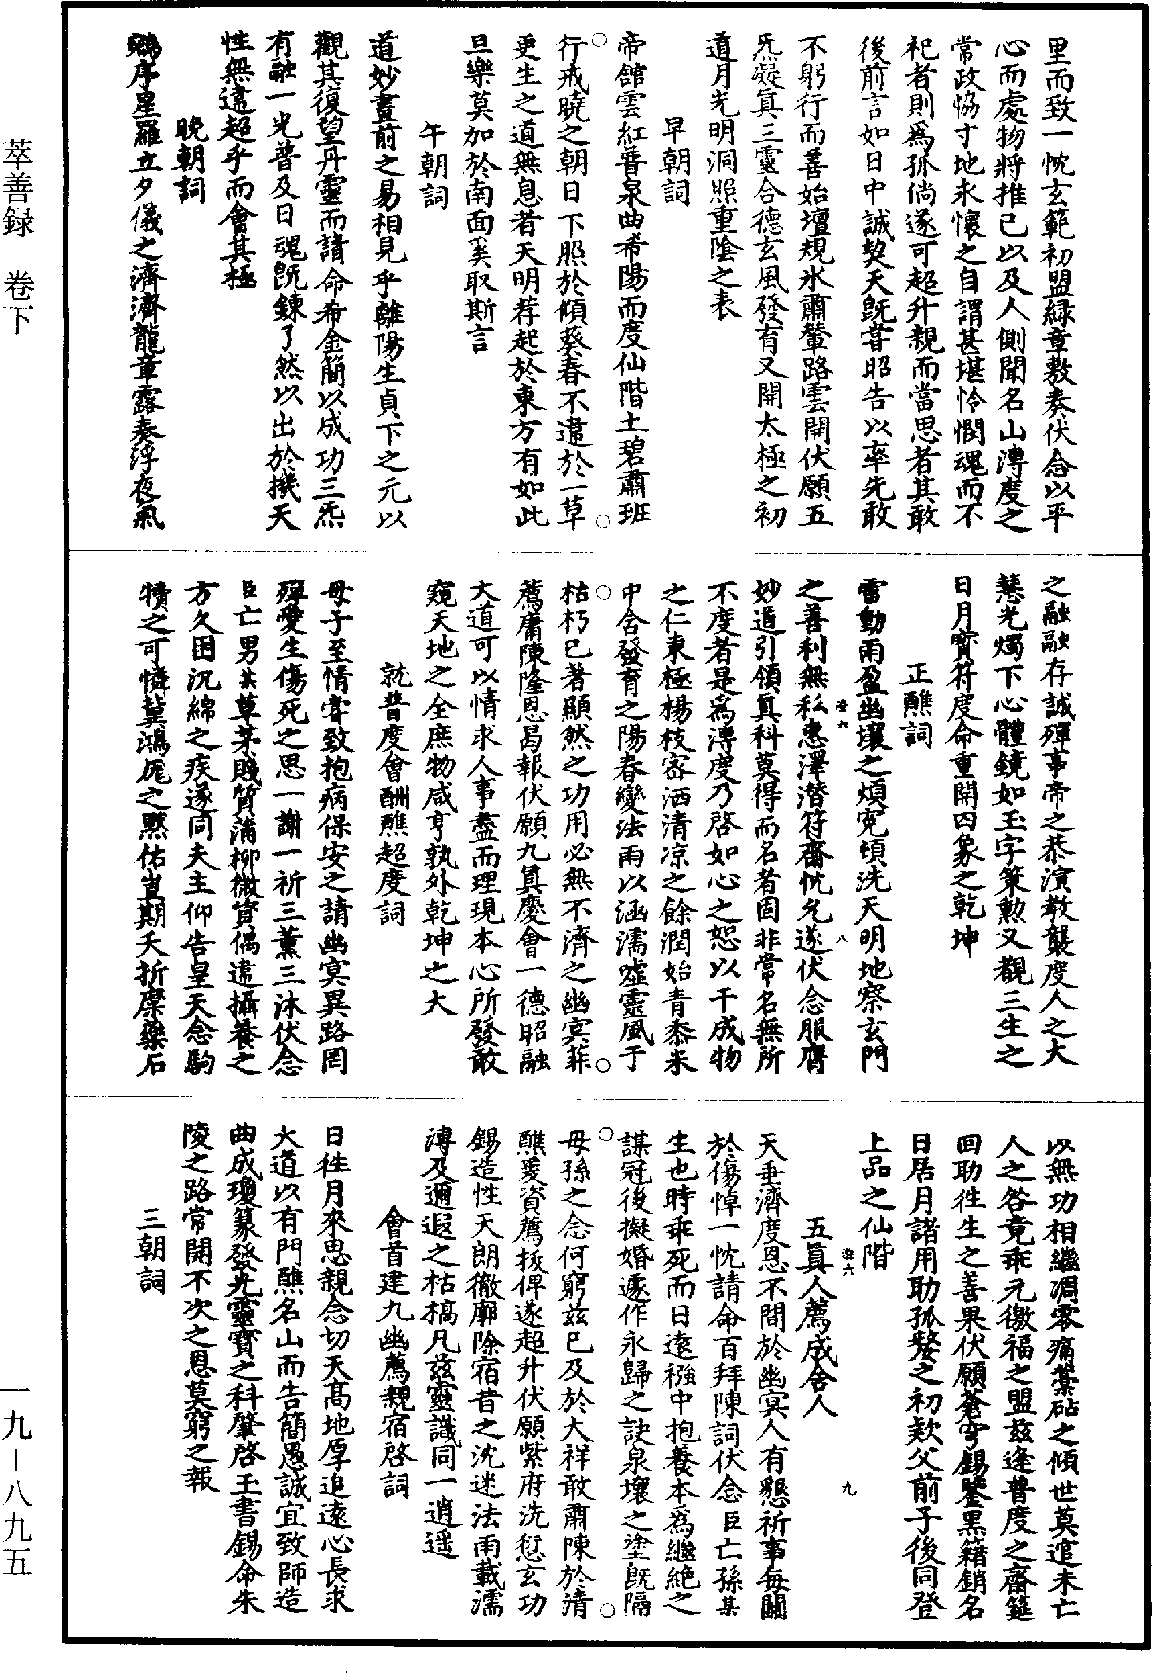 萃善録 卷下
里而致一忱玄範初盟緑章敷奏伏念以平
心而處物將推己以及人側聞名山溥度之
常政恊寸地永懷之自謂甚堪怜憫魂而不
祀者則為孤倘遂可超升親而當思者其敢
後前言如日中誠契天旣嘗昭告以率先敢
不躬行而善始壇規氷肅輦路雲開伏願五
炁凝真三靈合德玄風發育又開太極之初
道月光明洞照重陰之表
早朝詞
帝舘雲紅晉泉曲希陽而度仙階土碧肅班
行戒曉之朝日下照於傾葵春不遺於一草
更生之道無息者天明荐起於東方有如此
旦樂莫加於南面奚取斯言
午朝詞
道妙畫前之易相見乎離陽生貞下之元以
觀其復望丹靈而請命希金簡以成功三炁
有融一光普及日魂旣鍊了然以出於機天
性無遺超乎而會其極
晚朝詞
鵷序星羅立夕儀之濟濟龍章露奏浮夜氣
之融融存誠殫事帝之恭演教襲度人之大
慧光燭下心體鏡如玉字策勲又觀三生之
日月寳符度命重開四象之乾坤
正醮詞
雷動雨盈幽壤之煩寃頓洗天明地察玄門
之善利無私惠澤潜符齋忱允遂伏念服膺
妙道引領真科莫得而名者固非常名無所
不度者是為溥度乃啓如心之恕以干成物
之仁東極楊枝密洒清凉之餘潤始青黍米
中含發育之陽春變法雨以涵濡噓靈風于
枯朽已著顯然之功用必無不濟之幽冥菲
薦庸陳隆恩曷報伏願九真慶會一德昭融
大道可以情求人事盡而理現本心所發敢
窺天地之全庶物咸亨孰外乾坤之大
就普度會酬醮超度詞
母子至情害致抱病保安之請幽冥異路罔
殫愛生傷死之思一謝一祈三薰三沐伏念
臣亡男某草茅賤質蒲柳微資偶違攝養之
方久困沉綿之疾遂同夫主仰告皇天念駒
犢之可憐冀鴻厖之黙佑豈期夭折縻藥石
以無功相繼凋零痛藁砧之傾世莫追未亡
人之咎竟乖元徼福之盟兹逢普度之齋筵
回助徃生之善果伏願蒼穹錫鑒黑籍銷名
日居月諸用助孤嫠之初欵父前子後同登
上品之仙階
五真人薦成舍人
天垂濟度恩不間於幽冥人有懇祈事每關
於傷悼一忱請命百拜陳詞伏念臣亡孫某
生也時乖死而日遠襁中抱養本為繼絶之
謀冠後擬婚遽作永歸之訣泉壤之塗旣隔
母孫之念何窮兹已及於大祥敢肅陳於清
醮爰資薦拔俾遂超升伏願紫府洗愆玄功
錫造性天朗徹廓除宿昔之沈迷法雨載濡
溥及邇遐之枯槁凡兹靈識同一逍遥
會首建九幽薦親宿啓詞
日徃月來思親念切天髙地厚追遠心長求
大道以有門醮名山而告簡愚誠宜致師造
曲成瓊篆發光靈寳之科肇啓玉書錫命朱
陵之路常開不次之恩莫窮之報
三朝詞
一九－八九五